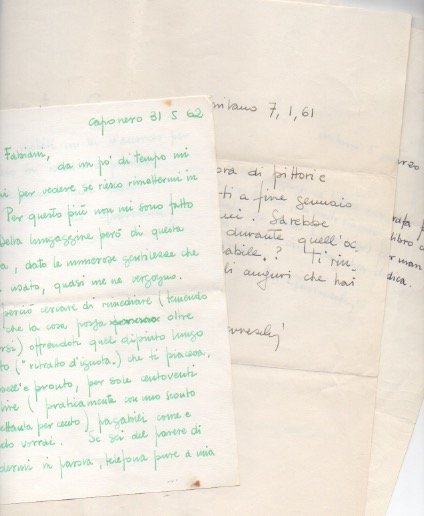 capo nero 31 5 62
Fabiani, da un po' di tempo mi
per vedere se riesco rimettermi in
Per questo più non mi sono fatto
Della lungaggine però di questa
, dato le numerose gentilezze che
usato, quasi me ne vergogno.
perciò cercare di rimediare (temendo
che la cosa possa oltre
offrendoti quel dipinto lungo
("ritratto d'ignota") che ti piaceva.
è pronto, per sole centoventi
lire (praticamente con uno sconto
per cento) pagabili come e
vorrai. Se sei del parere di
in parola, telefona pure a mia
milano 7, 1, 61
di pittori e
ti a fine gennaio
ui. Sarebbe
durante quell'oc.
abile..? Ti rin.
li auguri che hai
rzo
libro
per man
dica.